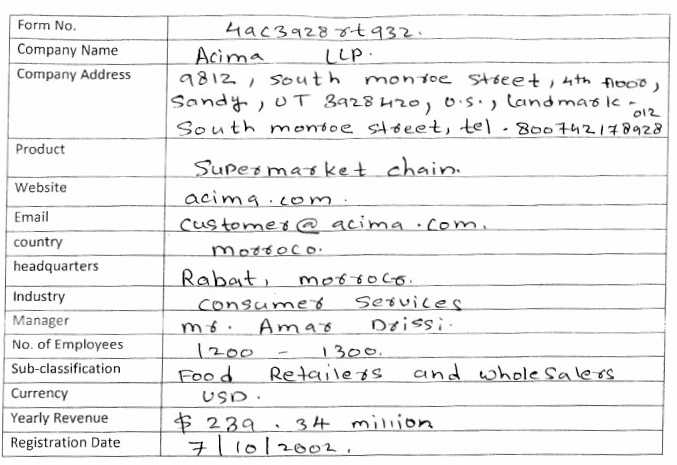 Form No. 4ac3928rt932.
Company Name Acima LLP.
Company Address 9812, south monroe street, 4th floor,
Sandy, UT 3928420, U.S., landmark -
012
South monroe street, tel - 800742178928
Product Supermarket chain.
Website acima.com.
Email customer@acima.com.
country morroco.
headquarters Rabat, morroco.
Industry consumer Services
Manager mr. Amar Drissi.
No. of Employees 1200 - 1300.
Sub-classification Food Retailers and wholesalers
Currency USD.
Yearly Revenue $ 239.34 million
Registration Date 7/10/2002.